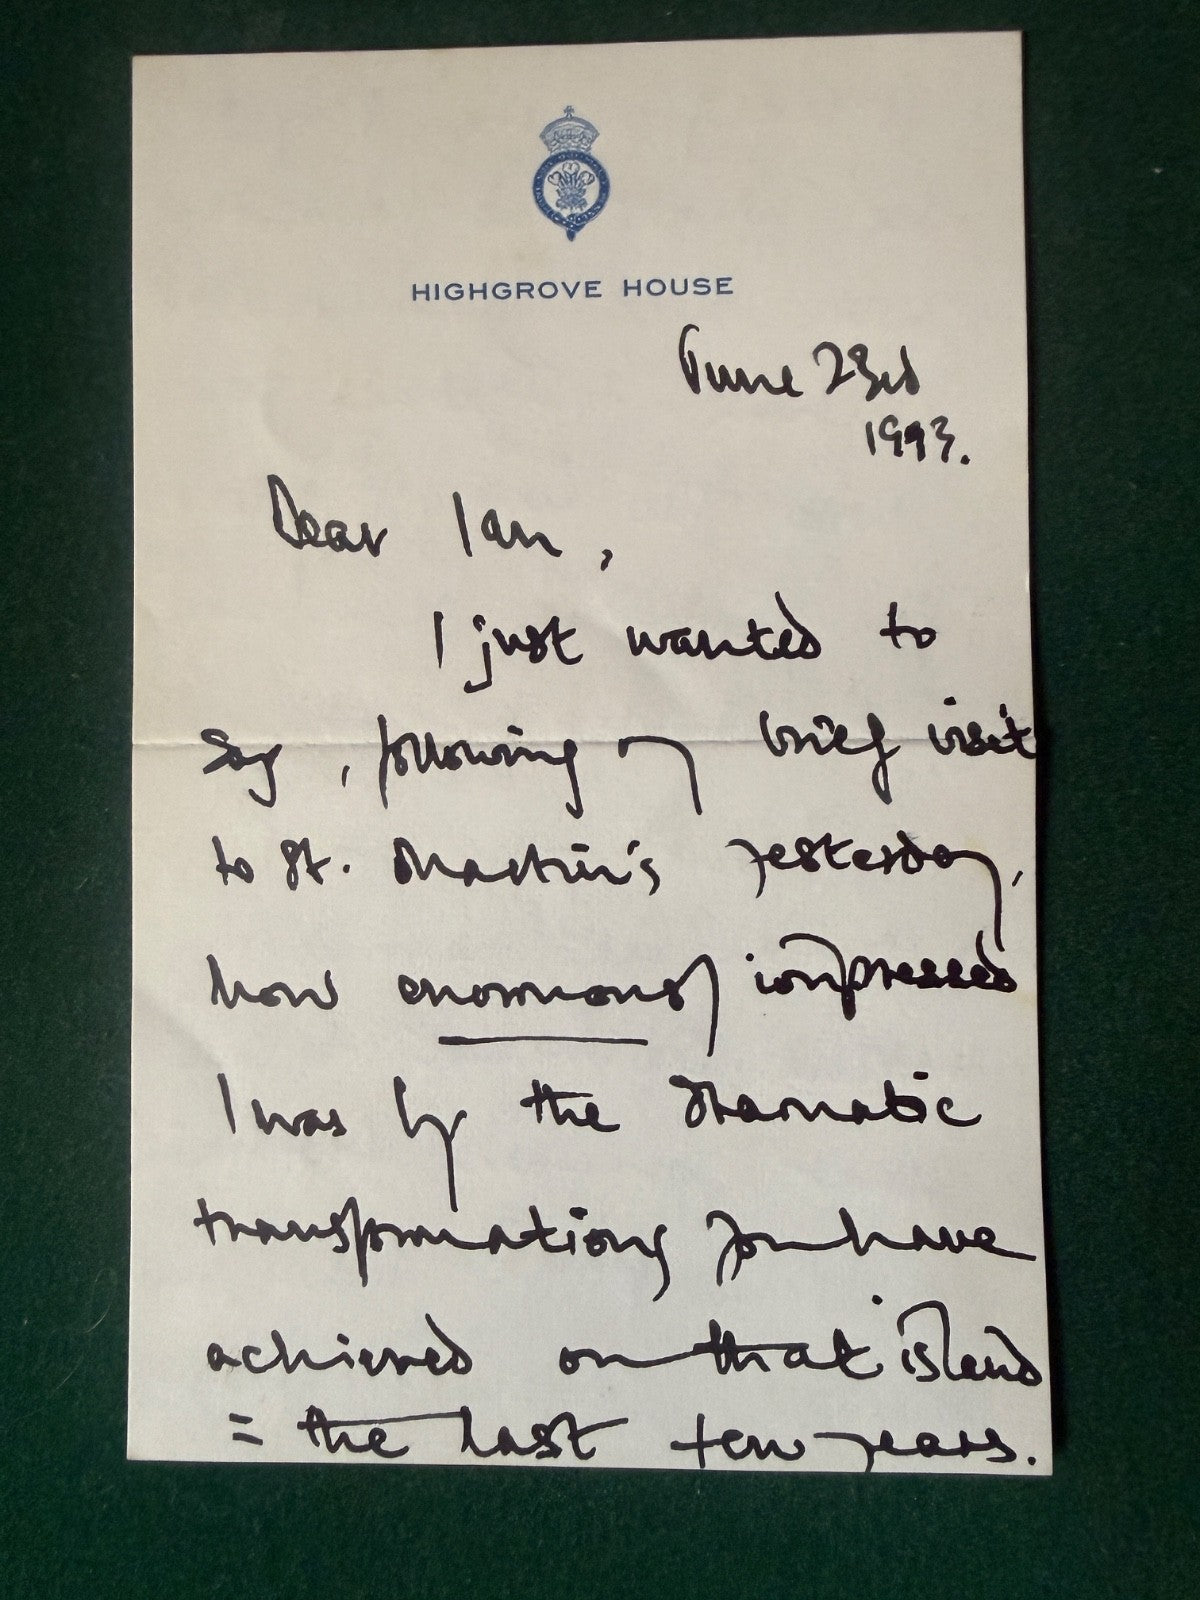 HIGHGROVE HOUSE
June 23rd
1993.
Dear Ian,
I just wanted to
say, following my brief visit
to St. Martin's yesterday,
how enormously impressed
I was by the dramatic
transformations you have
achieved on that island
= the last ten years.